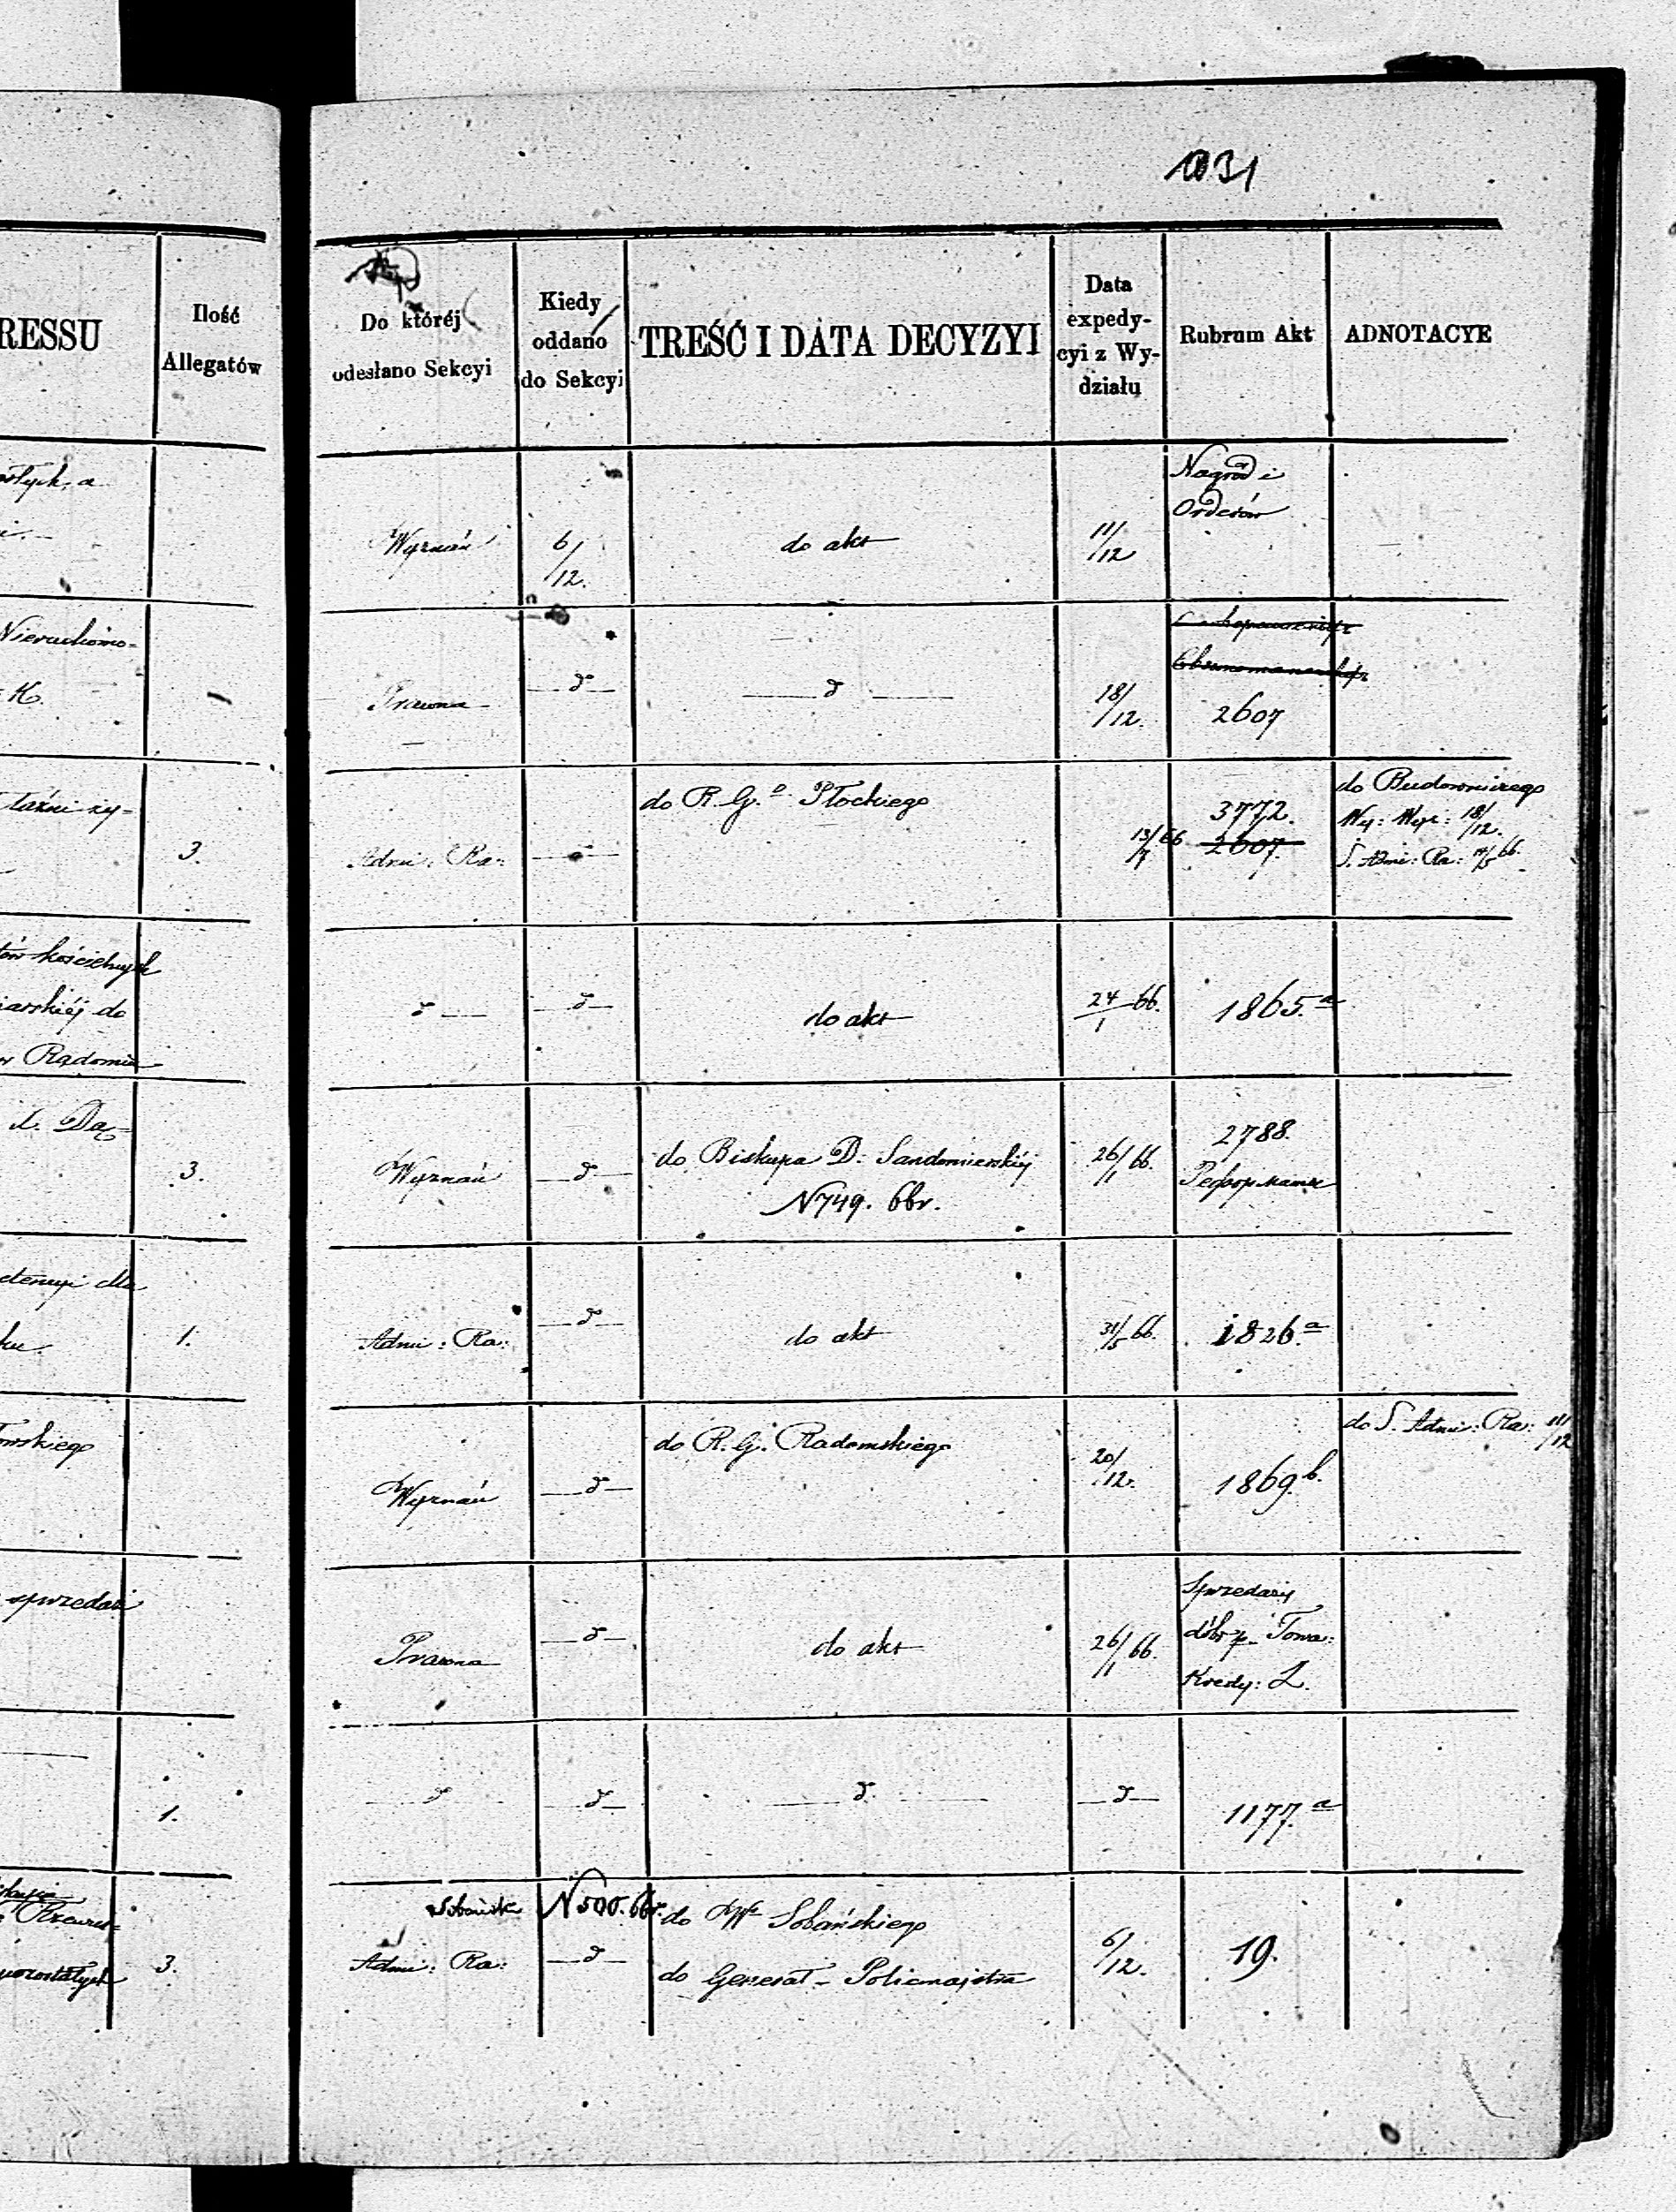 1031
RESSU
Ilość
Allegatów
Do któréj
odesłano Sekcyi
Kiedy
oddano
do Sekcyi
TREŚĆ I DATA DECYZYI
Data
expedy-
cyi z Wy-
działu
Rubrum Akt
ADNOTACYE
Wyznań
6/12.
do akt
11/12
Nagród i
Orderów
Nieruchomo-
K.
Prawna
—d—
—d—
18/12.
2607
łaźni ży-
3.
Adm: Ra:
—d—
do R. G.º Płockiego
13/7 66
3772.
2607.
do Budowniczego
Wy: Wyz: 18/12.
S. Adm: Ra: 66.
kościelnych
iarskiéj do
w Radomiu
d —
—d—
do akt
24/1 66.
1865.a
d. Dą-
3.
Wyznań
—d—
do Biskupa D. Sandomierskiéj
N 749. 66r.
26/1 66.
2788.
Реформатов
1.
Adm: Ra:
—d—
do akt
31/5 66.
1826.a
owskiego
Wyznań
—d—
do R. G. Radomskiego
20/12.
1869.b.
do S. Adm: Ra: 11/12
sprzedaż
Prawna
—d—
do akt
26/1 66.
Sprzedaży
dóbr p. Towa:
Kredy: Z.
1.
— d —
—d—
—d—
—d—
1177.a
pozostałych
3.
Adm: Ra:
N 500. 66r.
—d—
do We Sobańskiego
do Generał-Policmajstra
6/12.
19.